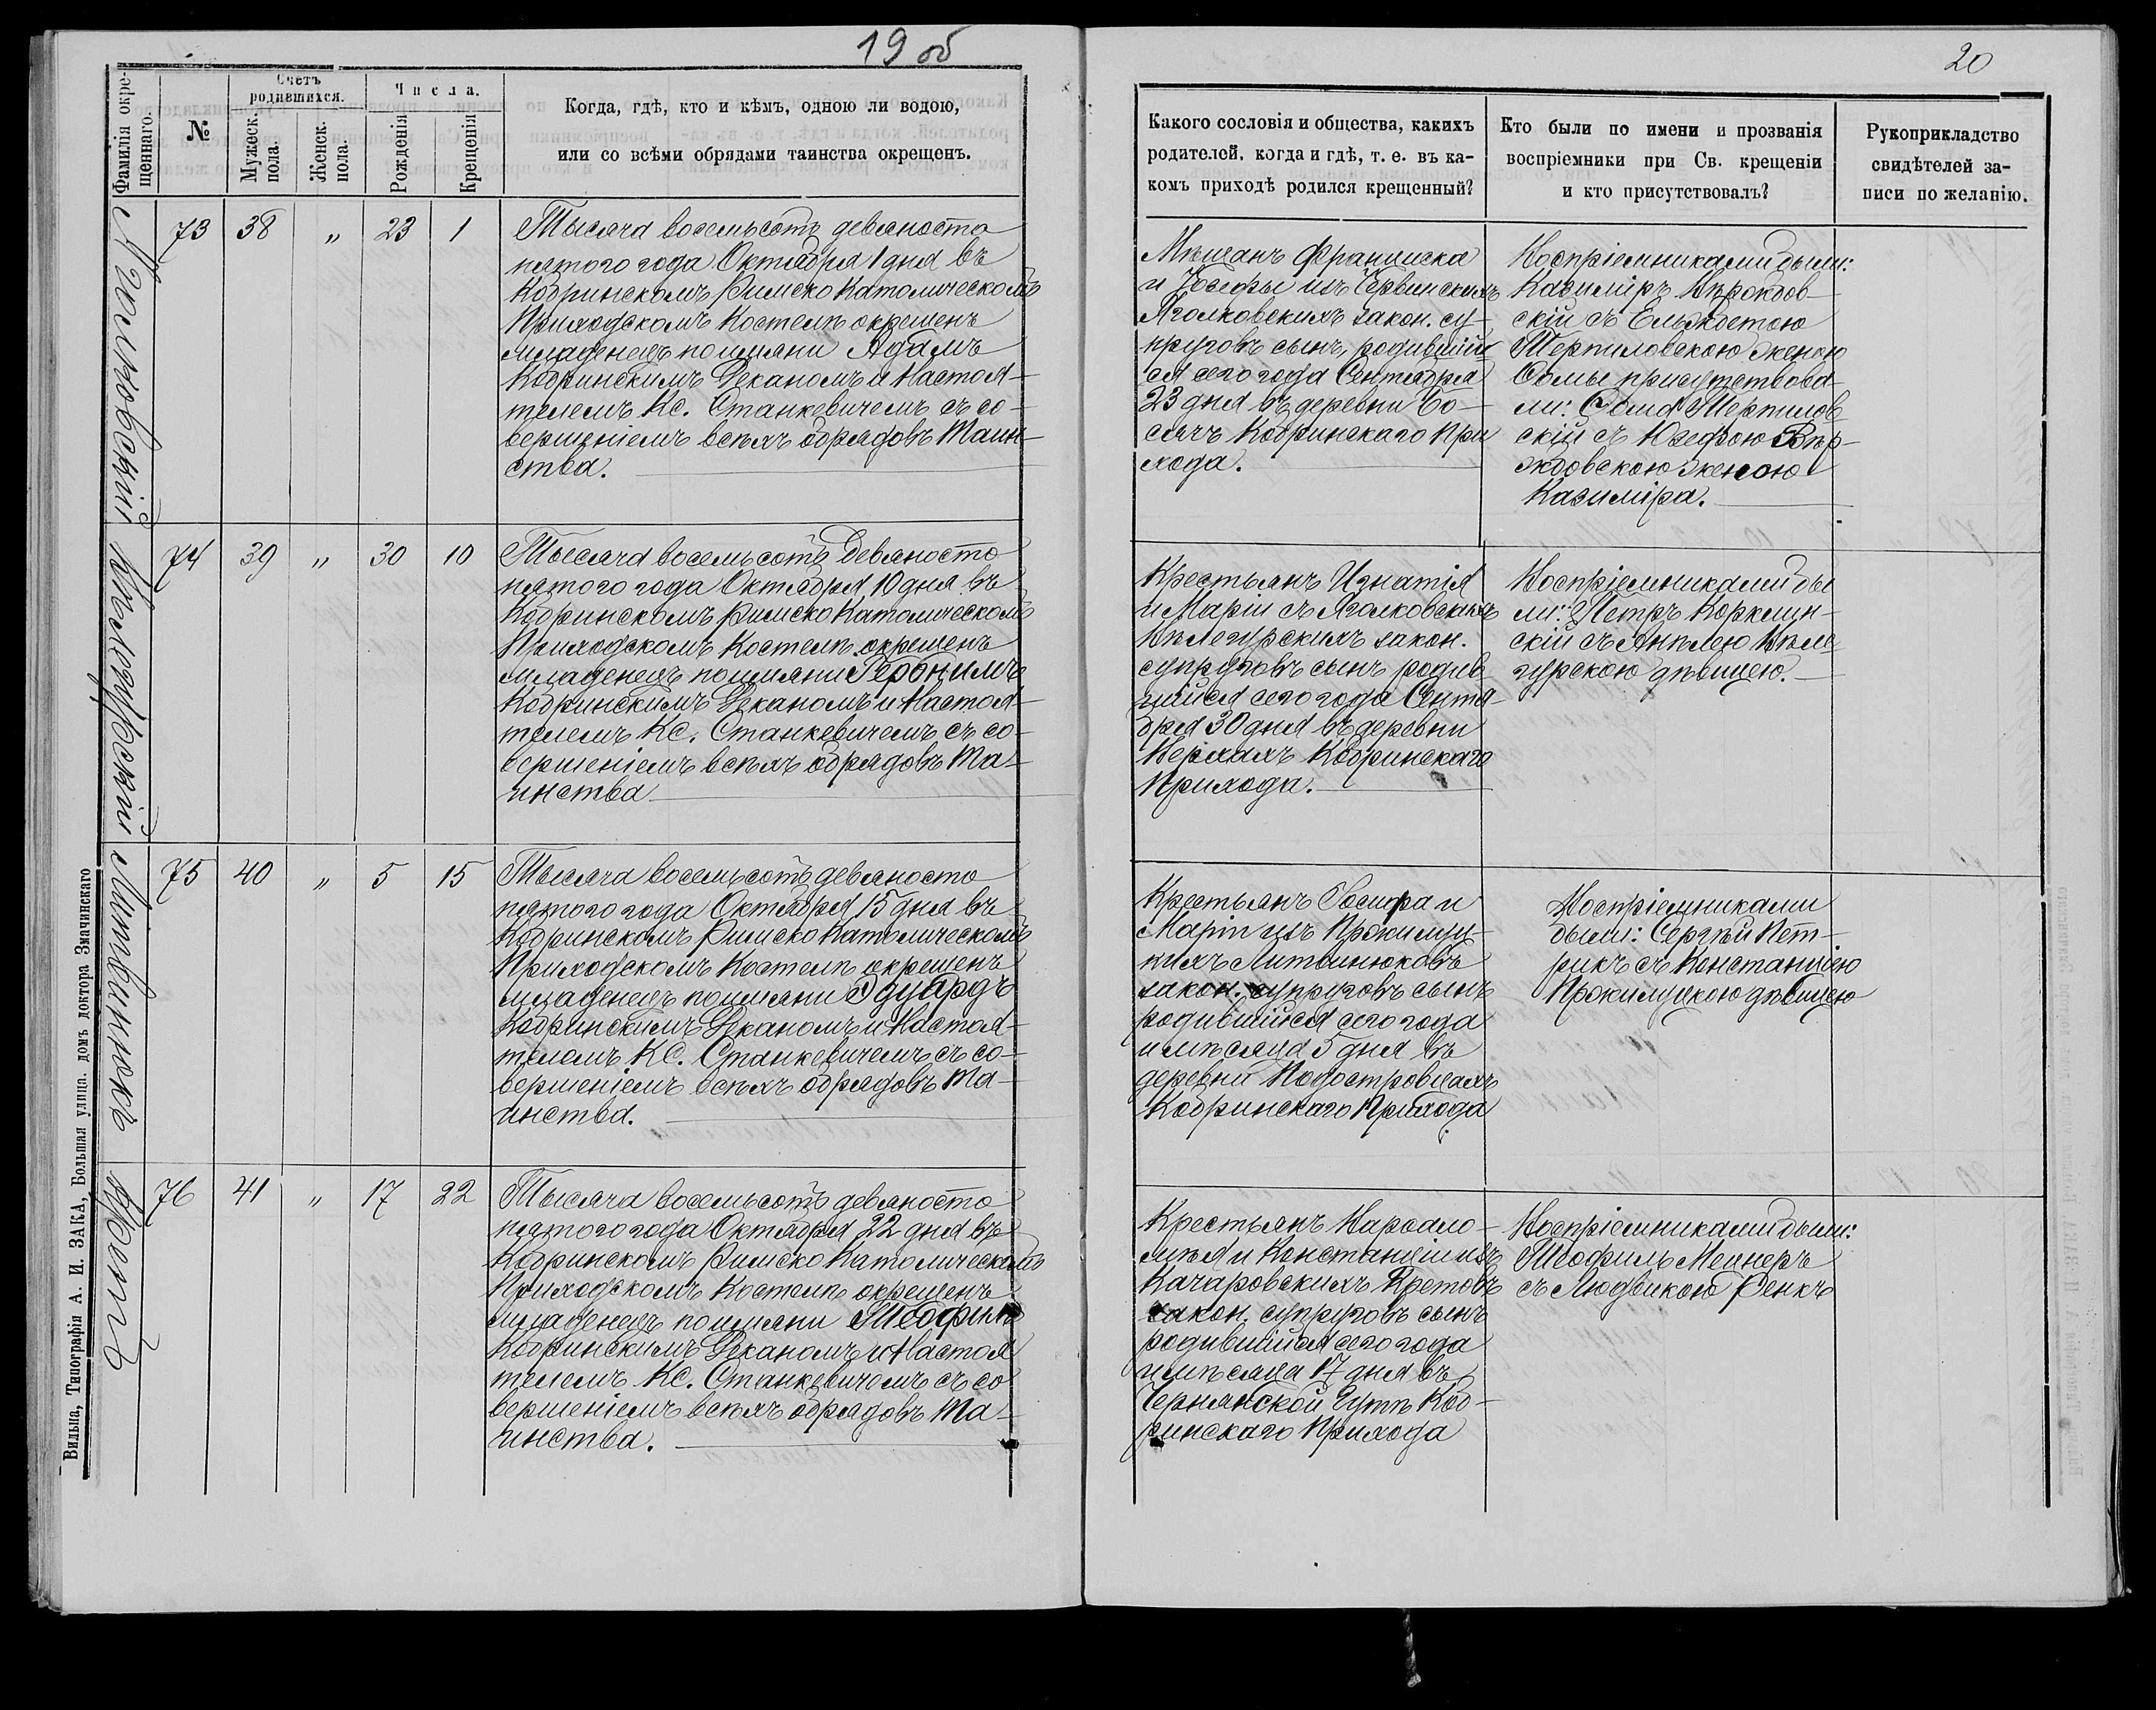 19 об
Фамилія окре-
щеннаго.
№
Счетъ
родившихся.
Мужеск.
пола.
Женск.
пола.
Числа.
Рожденія
Крещенія
Когда, гдѣ, кто и кѣмъ, одною ли водою,
или со всѣми обрядами таинства окрещенъ.
73 38 „ 23 1
Тысяча восемьсотъ девяносто
пятого года Октября 1 дня въ
Кобринскомъ Римско Католическомъ
Приходскомъ Костелѣ окрещенъ
младенецъ по имяни Адамъ
Кобринскимъ Деканомъ и Настоя-
телемъ Кс. Станкевичемъ съ со-
вершеніемъ всѣхъ обрядовъ Таин-
ства.
74 39 „ 30 10
Тысяча восемьсотъ девяносто
пятого года Октября 10 дня въ
Кобринскомъ Римско Католическомъ
Приходскомъ Костелѣ окрещенъ
младенецъ по имяни Геронимъ
Кобринскимъ Деканомъ и Настоя-
телемъ Кс. Станкевичемъ съ со-
вершеніемъ всѣхъ обрядовъ Та-
инства
Литвинюкъ
75 40 „ 5 15
Тысяча восемьсотъ девяносто
пятого года Октября 15 дня въ
Кобринскомъ Римско Католическомъ
Приходскомъ Костелѣ окрещенъ
младенецъ по имяни Эдуардъ
Кобринскимъ Деканомъ и Настоя-
телемъ Кс. Станкевичемъ съ со-
вершеніемъ всѣхъ обрядовъ Та-
инства.
76 41 „ 17 22
Тысяча восемьсотъ девяносто
пятого года Октября 22 дня въ
Кобринскомъ Римско Католическомъ
Приходскомъ Костелѣ окрещенъ
младенецъ по имяни Теофиль
Кобринскимъ Деканомъ и Настоя
телемъ Кс. Станкевичемъ съ со
вершеніемъ всѣхъ обрядовъ Та-
инства.
Вильна, Типографія А. И. ЗАКА, Большая улица. домъ доктора Змачинскаго
20
Какого сословія и общества, какихъ
родителей, когда и гдѣ, т. е. въ ка-
комъ приходѣ родился крещенный?
Кто были по имени и прозванія
воспріемники при Св. крещеніи
и кто присутствовалъ?
Рукоприкладство
свидѣтелей за-
писи по желанію.
Мѣщанъ Франциска
и Юзефы изъ Червинскихъ
Яголковскихъ закон. су-
пруговъ сынъ, родившій
ся сего года Сентября
23 дня въ деревни
Кобринскаго При
хода.
Воспріемниками были:
Казиміръ
скій съ Ельжбетою
Терпиловскою женою
Фомы присутствова-
ли: Фома Терпилов
скій съ Юзефою
женою
Казиміра.
Крестьянъ Игнатія
и Маріи съ Яголковскихъ
закон.
супруговъ сынъ родив
шійся сего года Сентя
бря 30 дня въ деревни
Кобринскаго
Прихода.
Воспріемниками бы
ли: Петръ
скій съ
дѣвицею.
Крестьянъ Іосифа и
Маріи изъ Прокимц-
кихъ Литвинюковъ
закон. супруговъ сынъ
родившійся сего года
и мѣсяца 5 дня въ
деревни Подостровцахъ
Кобринскаго Прихода
Воспріемниками
были: Сергѣй Пет-
рикъ съ Констанціею
Прокимцкою дѣвицею
Крестьянъ Варѳало-
мѣя и Констанціи изъ
Качаровскихъ Кретовъ
закон. супруговъ сынъ
родившійся сего года
и мѣсяца 17 дня въ
Чернянской Гутѣ Коб-
ринскаго Прихода
Воспріемниками были:
Теофиль
съ Людвикою